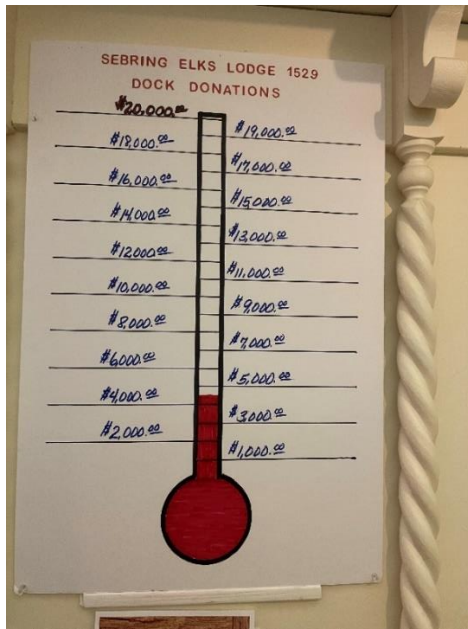 SEBRING ELKS LODGE 1529
DOCK DONATIONS
$20,000.00
$19,000.00
$18,000.00
$17,000.00
$16,000.00
$15,000.00
$14,000.00
$13,000.00
$12,000.00
$11,000.00
$10,000.00
$9,000.00
$8,000.00
$7,000.00
$6,000.00
$5,000.00
$4,000.00
$3,000.00
$2,000.00
$1,000.00